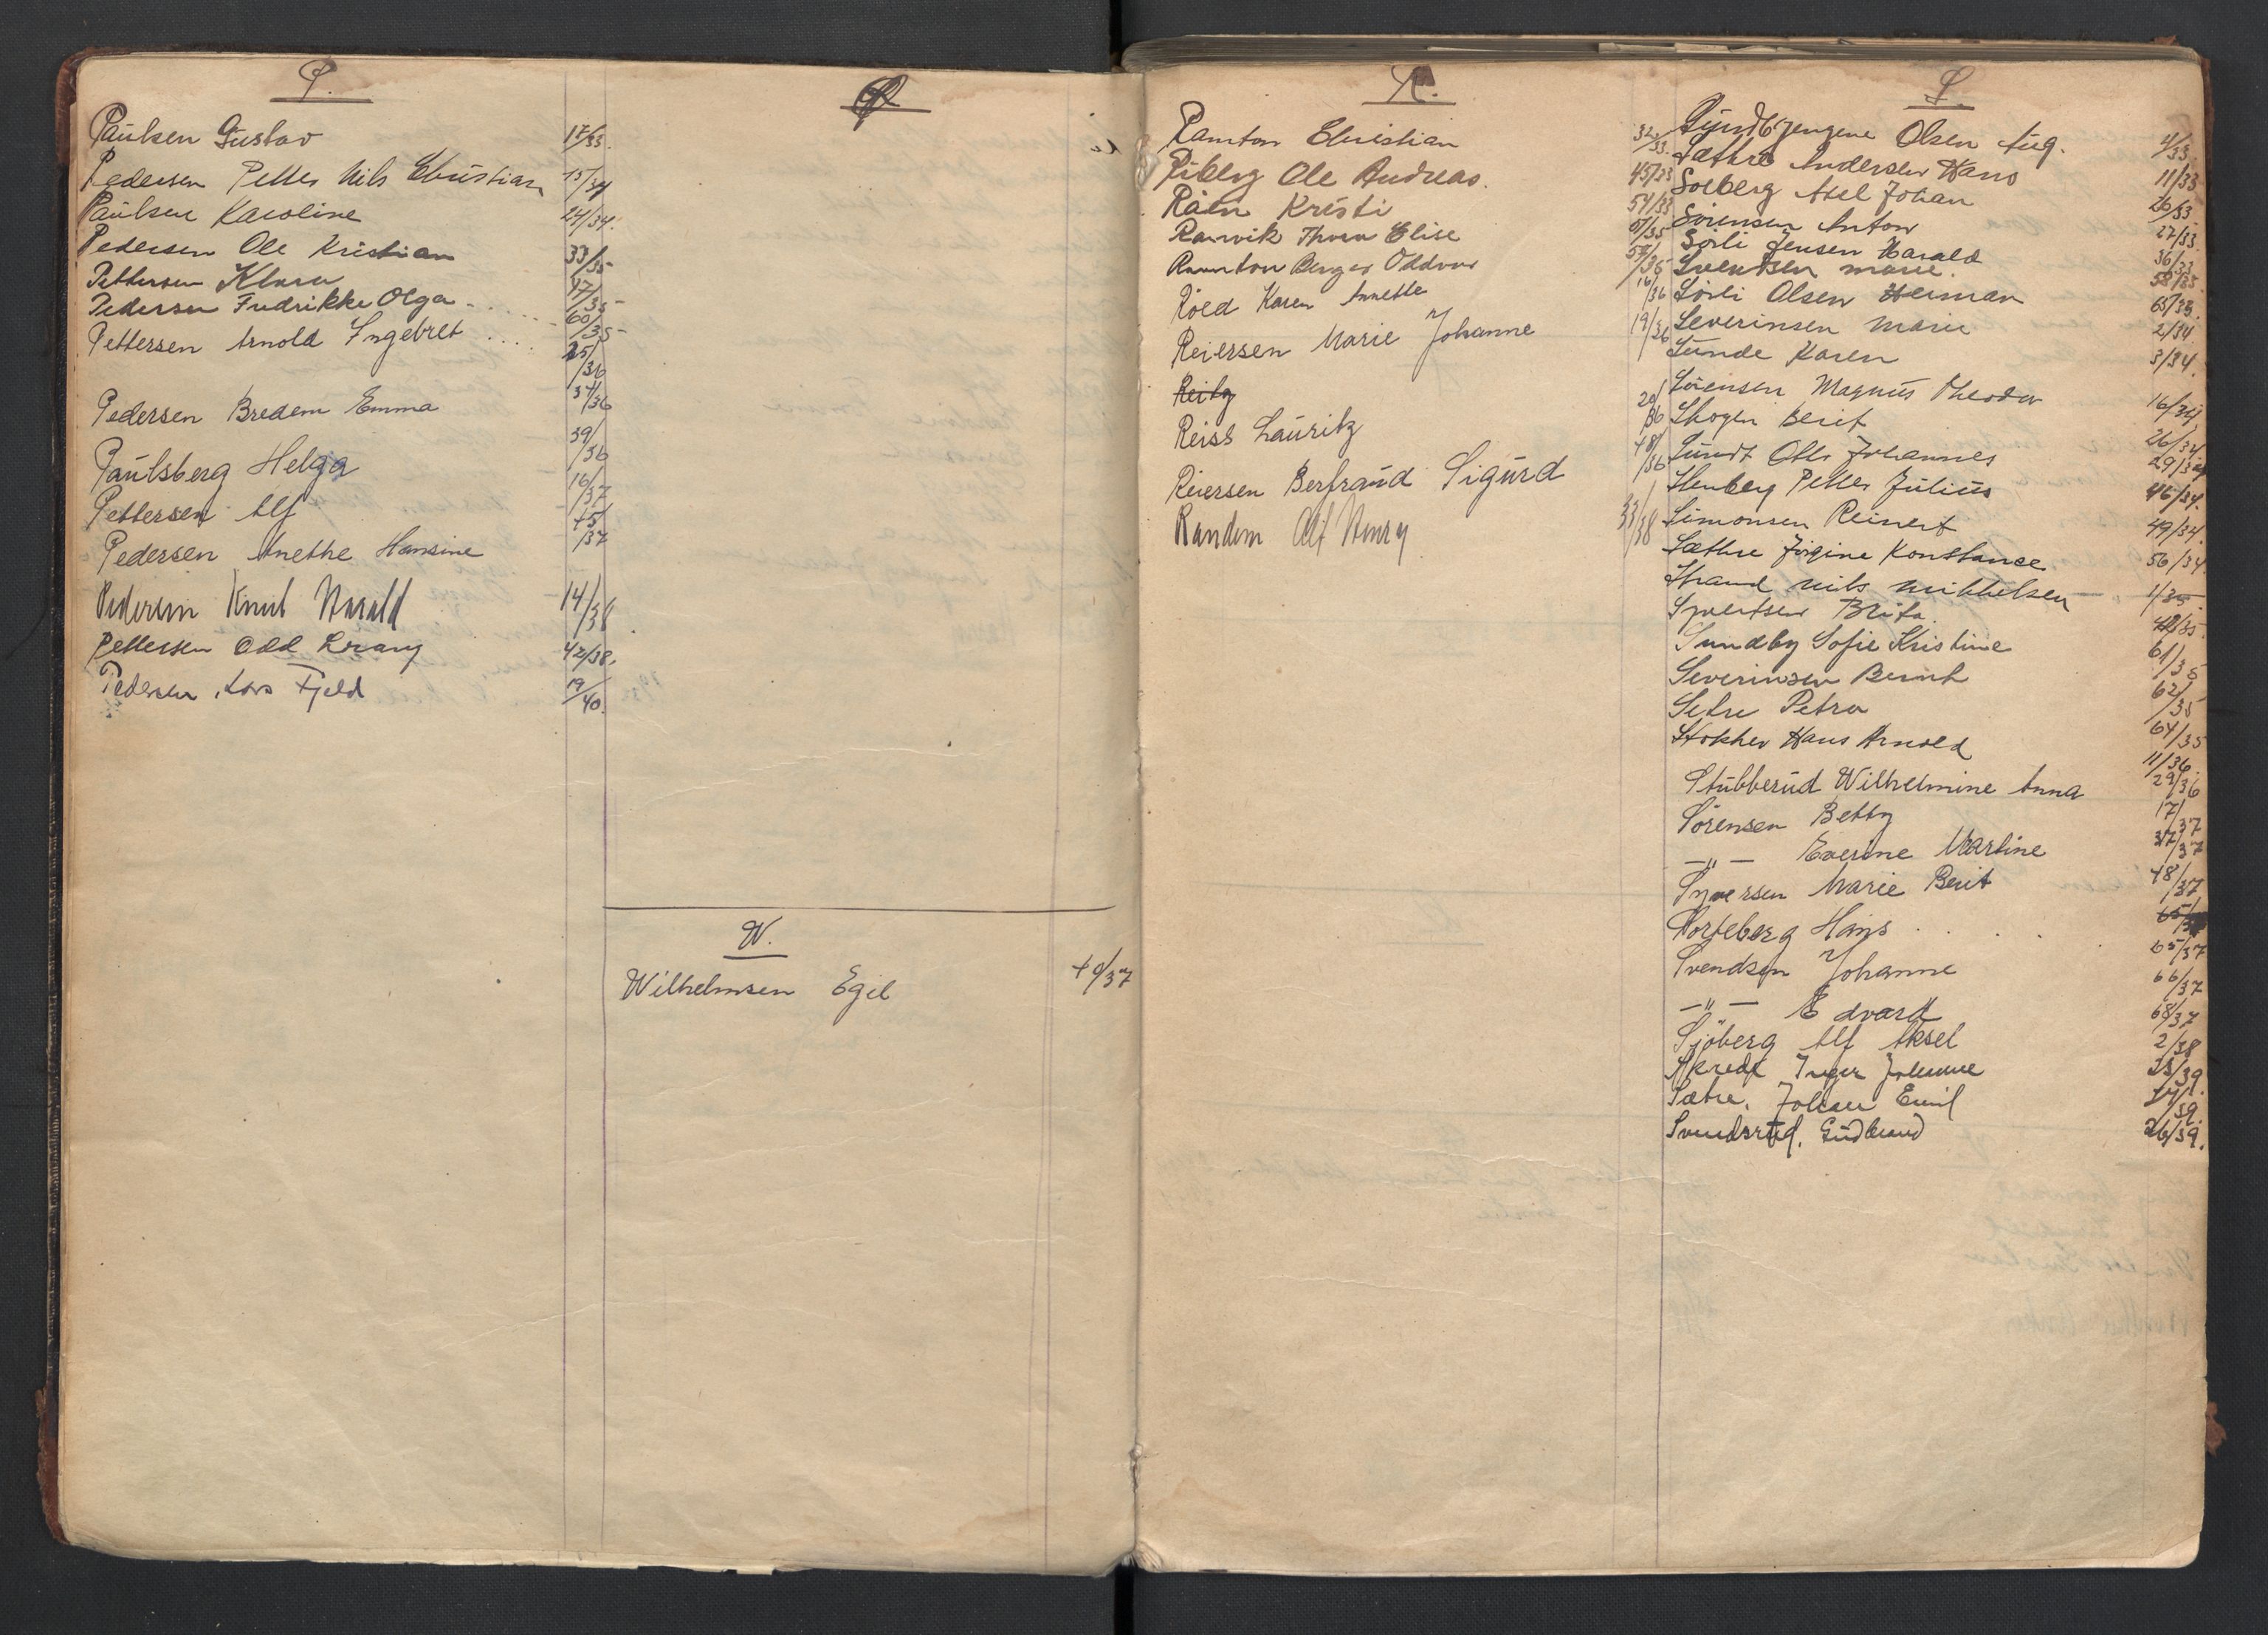 P.
Paulsen Gustav 17/33.
Pedersen Petter Nils Christian 15/34
Paulsen Karoline 24/34.
Pedersen Ole Kristian 33/35
Pettersen Klara 47/35
Pedersen Fredrikke Olga 60/35
Pettersen Arnold Ingebret 25/36
Pedersen Bredem Emma 37/36
Paulsberg Helga 39/36
Pettersen Alf 16/37
Pedersen Anethe Hansine 45/37
Pedersen Knut Harald 14/38
Pettersen Odd 42/38.
Pedersen Lars Fjeld 19/40.
Q
W.
Wilhelmsen Egil 40/37
R.
Ramton Christian 32/33.
Riberg Ole Andreas. 45/33
Råen Kristi 54/33
Ranvik Thora Elise 51/35
Ramton Berger Oddvar 59/35
Röed Karen Annette 16/36
Reiersen Marie Johanne 19/36
Reitz
Reiss Lauritz 20/36
Reiersen Bertraud Sigurd 48/36
Randem Alf Henry 33/38
S.
Olsen Aug. 4/33.
Sæthre Andersen Hans 11/33
Solberg Axel Johan 26/33
Sörensen Anton 27/33
Sörli Jensen Harald 36/33
Svendsen Marie. 58/33.
Sörli Olsen Herman 65/33.
Severinsen Marie 2/34
Sunde Karen 3/34.
Sörensen Magnus Theodor 16/34
Skogen Berit 26/34
Sundt Olls Johannes 29/34
Stenberg Petter Julius 46/34.
Simonsen Reinert 49/34.
Sæthre Jörgine Konstance 56/34
Strand Nils Mikkelsen 1/35.
Syvertsen Brita.
Sundby Sofie Kristine 61/35
Severinsen Bernt 62/35
Setre Petra 64/35
Stokker Hans Arnold 11/36.
Stubberud Wilhelmine Anna 29/36
Sörensen Betty 17/37
—"— Everine Martine 37/37
Syversen Marie Berit 48/37
Storteberg Hans 65/37
Svendsen Johanne 66/37
—"— Edvard 68/37
Sjöberg Alf Aksel 2/38
Inger Johanne 23/39.
Sætre, Johan Emil 24/39.
Svendsrud, Gudbrand 26/39.